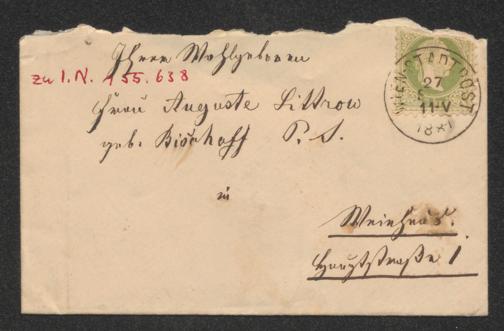 Ihrer Wohlgeboren
zu I.N. 155.638
Frau Auguste Littrow
geb. Bischoff P. S.
in
Weinhaus.
Hauptstraße 1
WIEN STADTPOST
27
5
11-V
1881